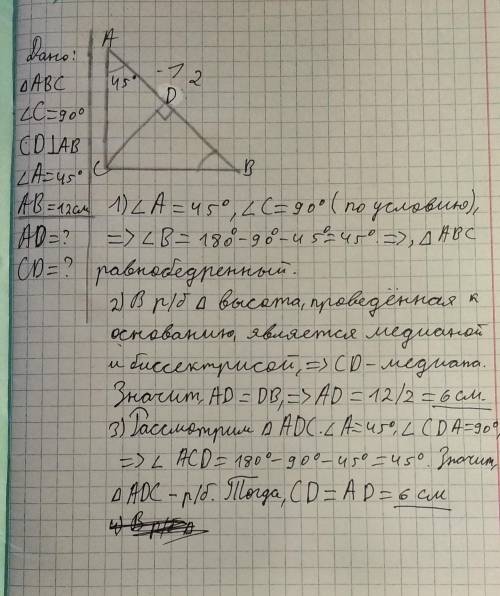 Дано:
△ABC
∠C=90°
CD⊥AB
∠A=45°
AB=12см
AD=?
CD=?
A
45°
-12
D
C
B
1) ∠A=45°, ∠C=90° (по условию),
=> ∠B=180°-90°-45°=45° =>, △ABC
равнобедренный.
2) В р/б △ высота, проведённая к
основанию, является медианой
и биссектрисой, => CD-медиана.
Значит, AD=DB, => AD=12/2=6 см.
3) Рассмотрим △ADC. ∠A=45°, ∠CDA=90°,
=> ∠ACD=180°-90°-45°=45°. Значит,
△ADC-р/б. Тогда, CD=AD=6 см
4) В р/б △